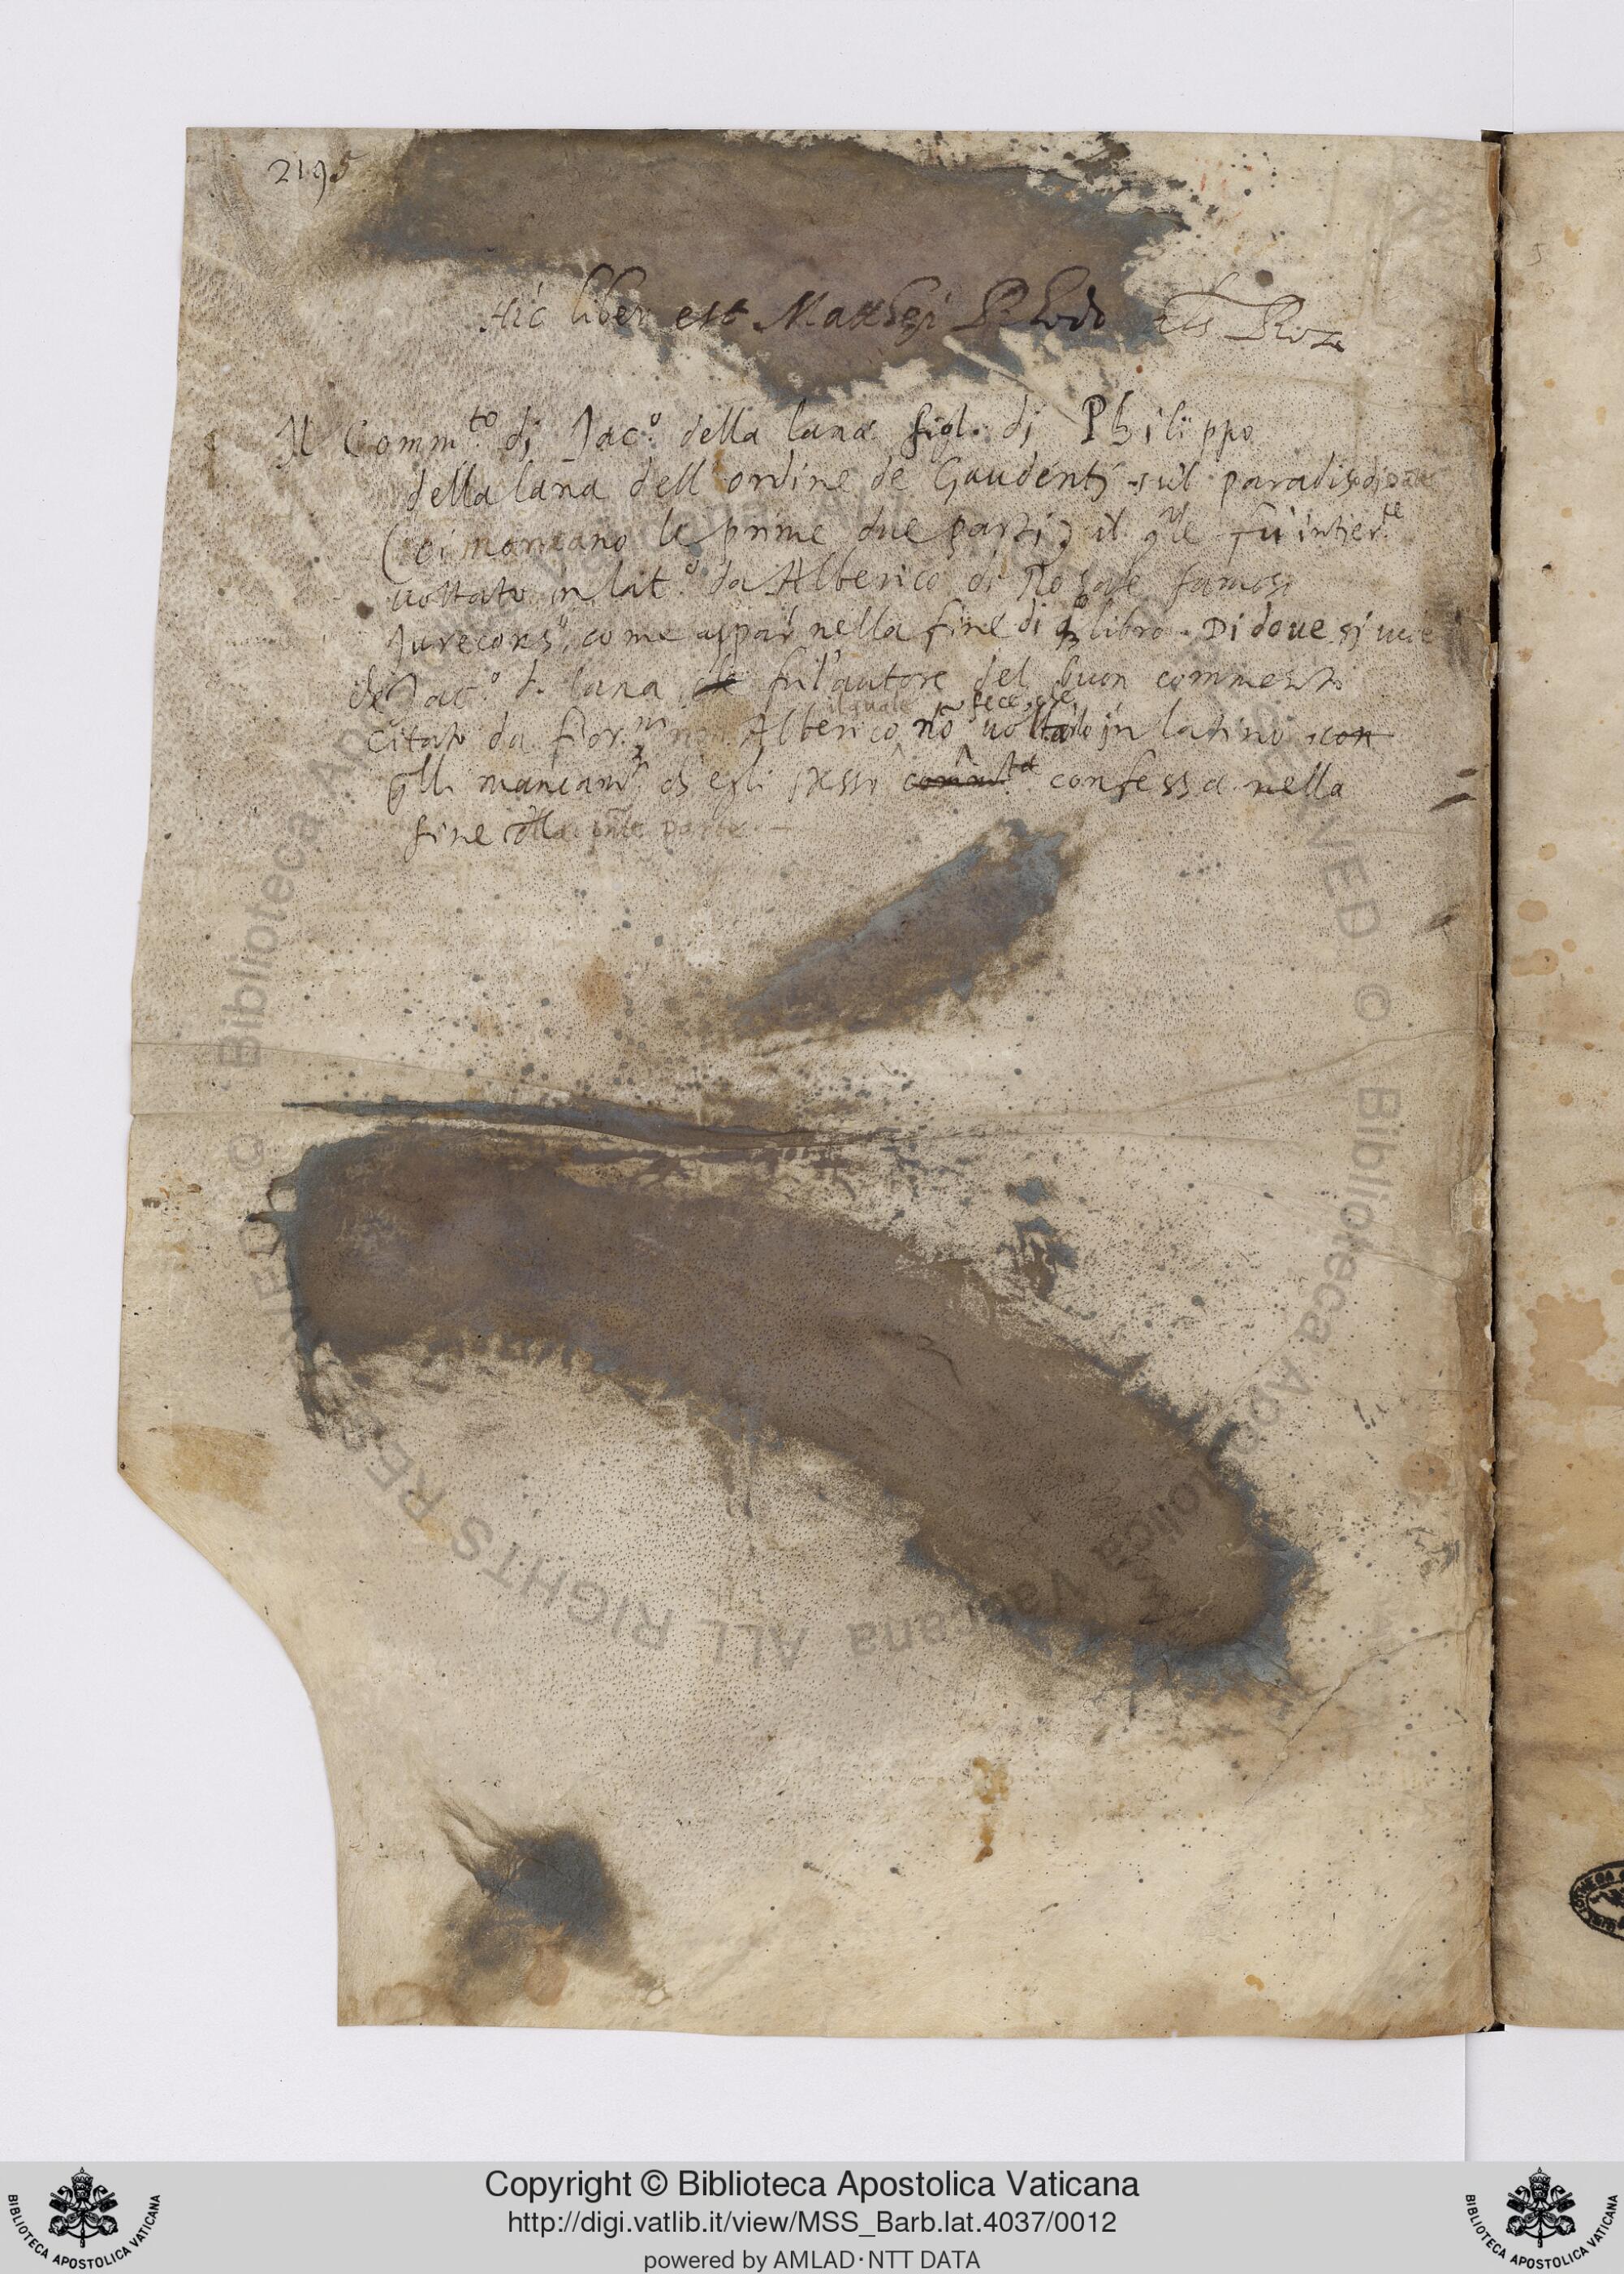 2195
Hic liber est Matthei
Il Comm.to di Jac.o della lana figl. di Philippo
della lana dell ordine de Gaudenti sul paradiso di
(ci mancano le prime due parti) il qle fu intier.te
uoltato in lat.o da Alberico di Rosate famoso
Jurecons.o come appar nella fine di libro. Di doue si
Jac.o d. lana fu l'autore del buon commento
il quale fece che
citato da Alberico nō uoltarlo in latino con
qlli egli stesso confessa nella
fine dlla pnte parte
Copyright © Biblioteca Apostolica Vaticana
http://digi.vatlib.it/view/MSS_Barb.lat.4037/0012
powered by AMLAD·NTT DATA
BIBLIOTECA APOSTOLICA VATICANA
BIBLIOTECA APOSTOLICA VATICANA